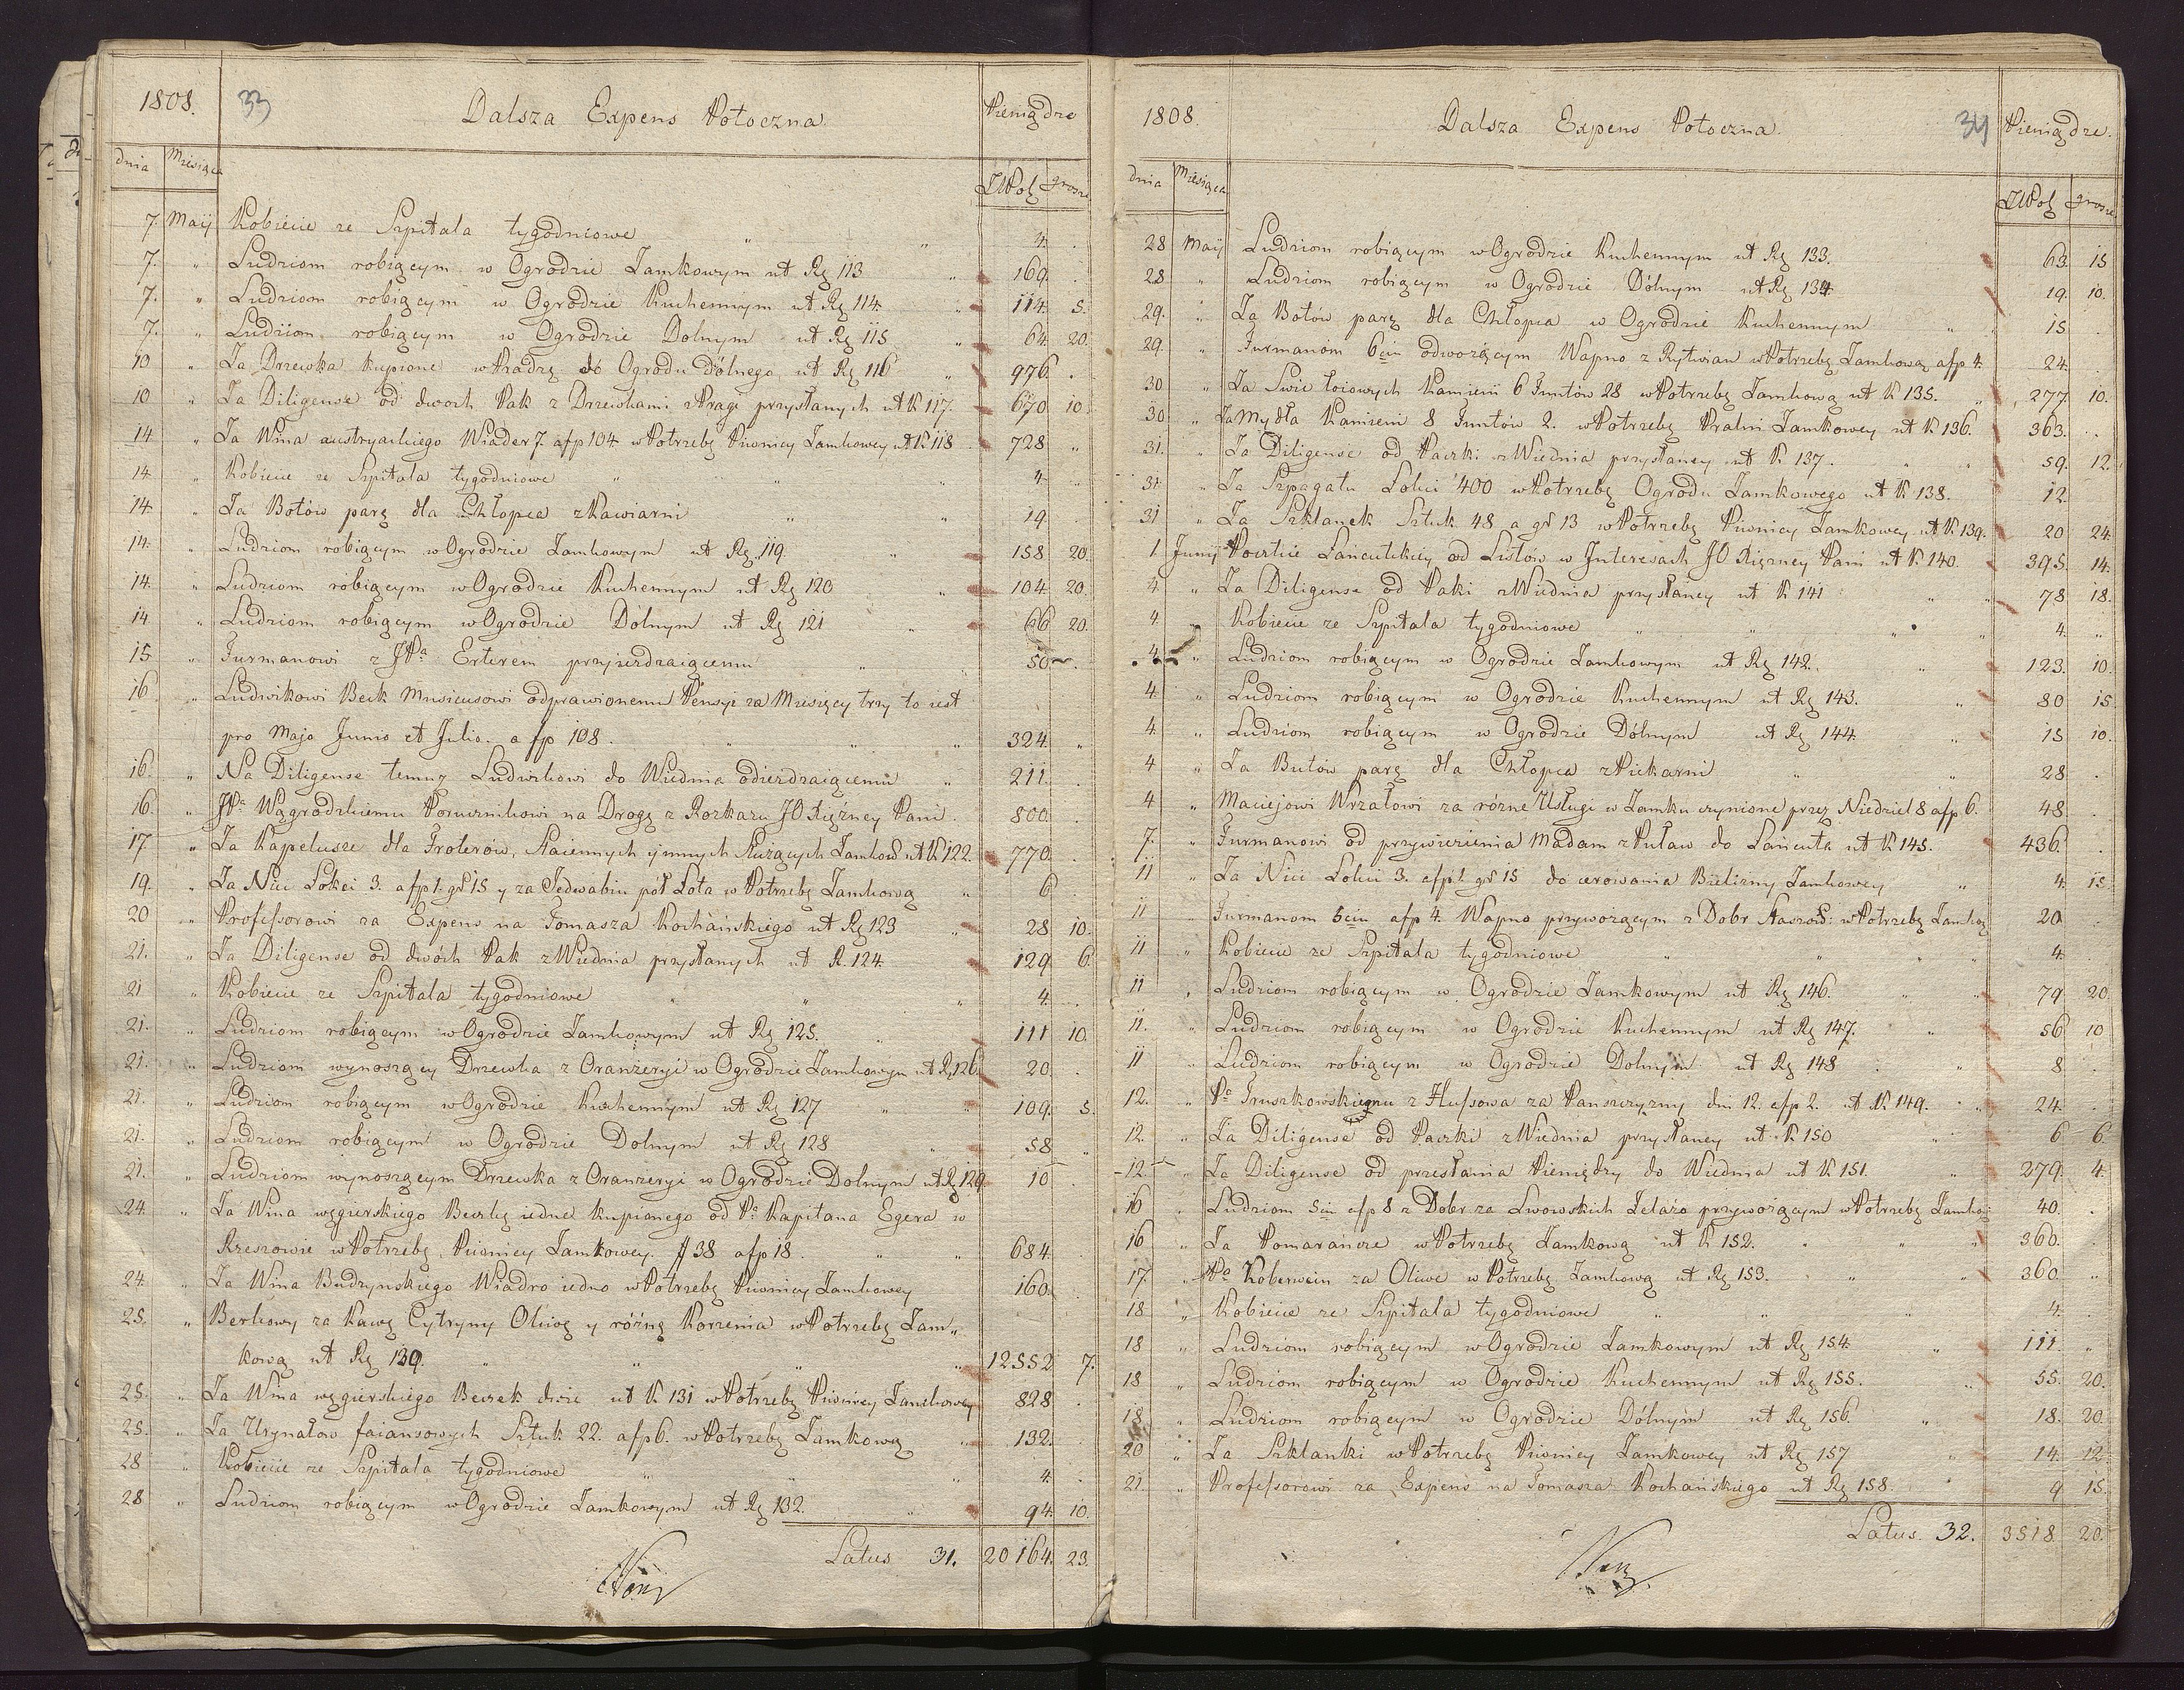 1808. 33 Dalsza Expens Potoczna. Pieniądze
dnia Miesiąca ZłPol grosze
7. Maij Kobiecie ze Szpitala tygodniowe " " 4. .
7. " Ludziom robiącym w Ogrodzie Zamkowym ut Rg 113 " 169. .
7. " Ludziom robiącym w Ogrodzie Kuchennym ut Rg 114. " 114. 5.
7. " Ludziom robiącym w Ogrodzie Dolnym ut Rg 115 " 64. 20.
10 " Za Drzewka kupione w Pradze do Ogrodu dólnego ut Rg 116 " 976. .
10 " Za Diligense od dwoch Pak z Drzewkami z Pragi przysłanych ut K 117. 670 10
14 " Za Wina austryackiego Wiader 7. afp 104 w Potrzebę Piwnicy Zamkowey ut K 118 728 "
14 " Kobiecie ze Szpitala tygodniowe " " " 4. .
14. " Za Botów parę dla Chłopca z Kawiarni " " 19 .
14. " Ludziom robiącym w Ogrodzie Zamkowym ut Rg 119. " 158 20.
14. " Ludziom robiącym w Ogrodzie Kuchennym ut Rg 120 " 104. 20.
14 " Ludziom robiącym w Ogrodzie Dolnym ut Rg 121 " 66 20.
15 " Furmanowi z JPa Erterem przyjezdzaiącemu " 50 .
16 " Ludwikowi Beck Musicusowi odprawionemu Pensyi za Miesięcy trzy to iest
pro Majo Junio et Julio. a fp 108. " " " 324. "
16. " Na Diligense temuz Ludwikowi do Wiednia odiezdzaiącemu " 211. .
16. " JPa Wągrodzkiemu Porucznikowi na Drogę z Rozkazu JO Xiężney Pani. 800. .
17 " Za Kapelusze dla Froterów, Staiennych y innych Służących Zamkow ut K 122. 770. .
19. " Za Nici Łokci 3. afp 1. gr 15 y za Jedwabiu pół Łota w Potrzebę Zamkową " 6 .
20 " Professorowi za Expens na Tomasza Kochańskiego ut Rg 123 " 28 10.
21. " Za Diligense od dwóch Pak z Wiednia przysłanych ut K. 124. 129 6.
21 " Kobiecie ze Szpitala tygodniowe " " " 4. .
21. " Ludziom robiącym w Ogrodzie Zamkowym ut Rg 125. " 111 10.
21. " Ludziom wynoszący Drzewka z Oranzeryi w Ogrodzie Zamkowym ut Rg 126. 20. .
21. " Ludziom robiącym w Ogrodzie Kuchennym ut Rg 127 " " 109. 5.
21. " Ludziom robiącym w Ogrodzie Dolnym ut Rg 128 " 58 "
21. " Ludziom wynoszącym Drzewka z Oranzeryi w Ogrodzie Dolnym ut Rg 129 10 .
24. " Za Wina węgierskiego Beczkę iedne kupionego od Pa Kapitana Egera w
Rzeszowie w Potrzebę Piwnicy Zamkowey. # 38 afp 18. " " 684. .
24. " Za Wina Budzynskiego Wiadro iedno w Potrzebę Piwnicy Zamkowey 160. .
25. " Berkowy za Kawę Cytryny Oliwę y różną Korzenia w Potrzebę Zam„
kową ut Rg 130. " " " 12552 7.
25. " Za Wina węgierskiego Beczek dwie ut K 131 w Potrzebę Piwnicy Zamkowey 828 .
25. " Za Urynałow faiansowych Sztuk 22. afp 6. w Potrzebę Zamkową " 132. .
28 " Kobiecie ze Szpitala tygodniowe " " " 4. .
28 " Ludziom robiącym w Ogrodzie Zamkowym ut Rg 132. " 94. 10.
Latus 31. 20164. 23.
1808. Dalsza Expens Potoczna. 34 Pieniądze.
dnia Miesiąca ZłPol grosze
28 Maij Ludziom robiącym w Ogrodzie Kuchennym ut Rg 133. 63. 15
28 " Ludziom robiącym w Ogrodzie Dólnym ut Rg 134. 19. 10.
29. " Za Botów parę dla Chłopca w Ogrodzie Kuchennym " " 15. .
29. " Furmanom 6ciu odwożącym Wapno z Rytwian w Potrzebę Zamkową afp 4. 24. .
30 " Za Swic łoiowych Kamieni 6 Funtów 28 w Potrzebę Zamkową ut K 135. " 277. 10.
30 " Za Mydła Kamieni 8 Funtów 2. w Potrzebę Pralni Zamkowey ut K 136. 363. .
31. " Za Diligense od Paczki z Wiednia przysłaney ut K 137. " " 59. 12.
31 " Za Szpagatu Łokci 400 w Potrzebę Ogrodu Zamkowego ut K 138. 12.
31 " Za Szklanek Sztuk 48 a gr 13 w Potrzebę Piwnicy Zamkowey ut K 139. 20 24.
1 Junij Poczcie Łancutskiey od Listów w Interesach JO Xiężney Pani ut K 140. 395. 14.
4 " Za Diligense od Paki z Wiednia przysłaney ut K 141 " " 78. 18.
4. " Kobiecie ze Szpitala tygodniowe " " " 4. "
4. " Ludziom robiącym w Ogrodzie Zamkowym ut Rg 142. " 123. 10.
4. " Ludziom robiącym w Ogrodzie Kuchennym ut Rg 143. " 80 15
4. " Ludziom robiącym w Ogrodzie Dólnym ut Rg 144. " 15 10.
4 " Za Butów parę dla Chłopca z Piekarni " " 28 .
4 " Maciejowi Wrzałowi za rózne Usługi w Zamku czynione przez Niedziel 8 afp 6. 48 .
7. " Furmanowi od przywiezienia Madam z Puław do Łańcuta ut K 145. 436 .
11 " Za Nici Łokci 3. afp 1. gr 15 do cerowania Bielizny Zamkowey " 4. 15
11 " Furmanom 5ciu afp 4. Wapno przywożącym z Dobr Staszow: w Potrzebę Zamkową 20 .
11 " Kobiecie ze Szpitala tygodniowe " " " 4. .
11 " Ludziom robiącym w Ogrodzie Zamkowym ut Rg 146. " 79 20.
11. " Ludziom robiącym w Ogrodzie Kuchennym ut Rg 147. " 56 10
11 " Ludziom robiącym w Ogrodzie Dolnym ut Rg 148 " 8 .
12. " Pa Gruszkowskiemu z Hussowa za Panszczyzny dni 12. afp 2. ut K 149. " 24. .
12. " Za Diligense od Paczki z Wiednia przysłaney ut K 150 " 6 6.
12. " Za Diligense od przesłania Pieniędzy do Wiednia ut K 151. " 279. 4.
16 " Ludziom 5ciu afp 8 z Dobr za Lwowskich Zelazo przywożącym w Potrzebę Zamkową 40. .
16 " Za Pomarańcze w Potrzebę Zamkową ut K 152. " " 360. .
17. " Pa Koberwein za Oliwe w Potrzebę Zamkową ut Rg 153. " " 360. "
18 " Kobiecie ze Szpitala tygodniowe " " " 4. .
18 " Ludziom robiącym w Ogrodzie Zamkowym ut Rg 154. " 111. "
18 " Ludziom robiącym w Ogrodzie Kuchennym ut Rg 155. " 55. 20.
18 " Ludziom robiącym w Ogrodzie Dólnym ut Rg 156. " 18. 20
20 " Za Szklanki w Potrzebę Piwnicy Zamkowey ut Rg 157 " 14. 12
21. " Professorowi za Expens na Tomasza Kochańskiego ut Rg 158. " 9 15.
Latus. 32. 3518 20.